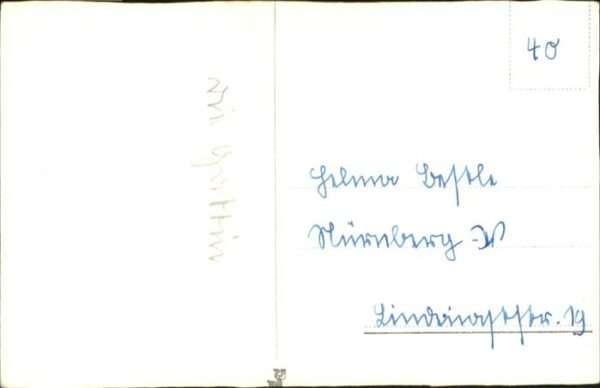 40
Helma Bestle
Nürnberg-W
Lindenaststr. 19